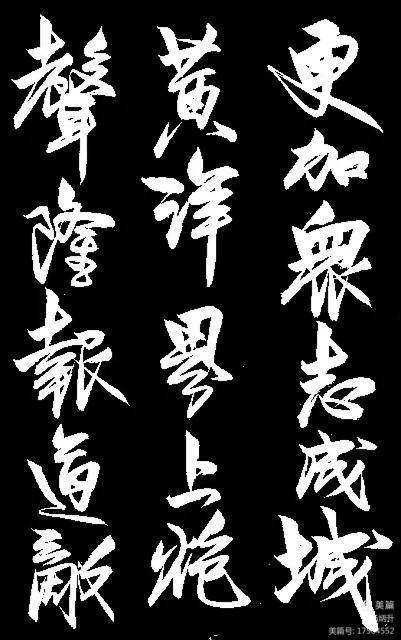 更加眾志成城
黃洋界上炮
聲隆報道敵
美篇
炳升
美篇号: 17
4552